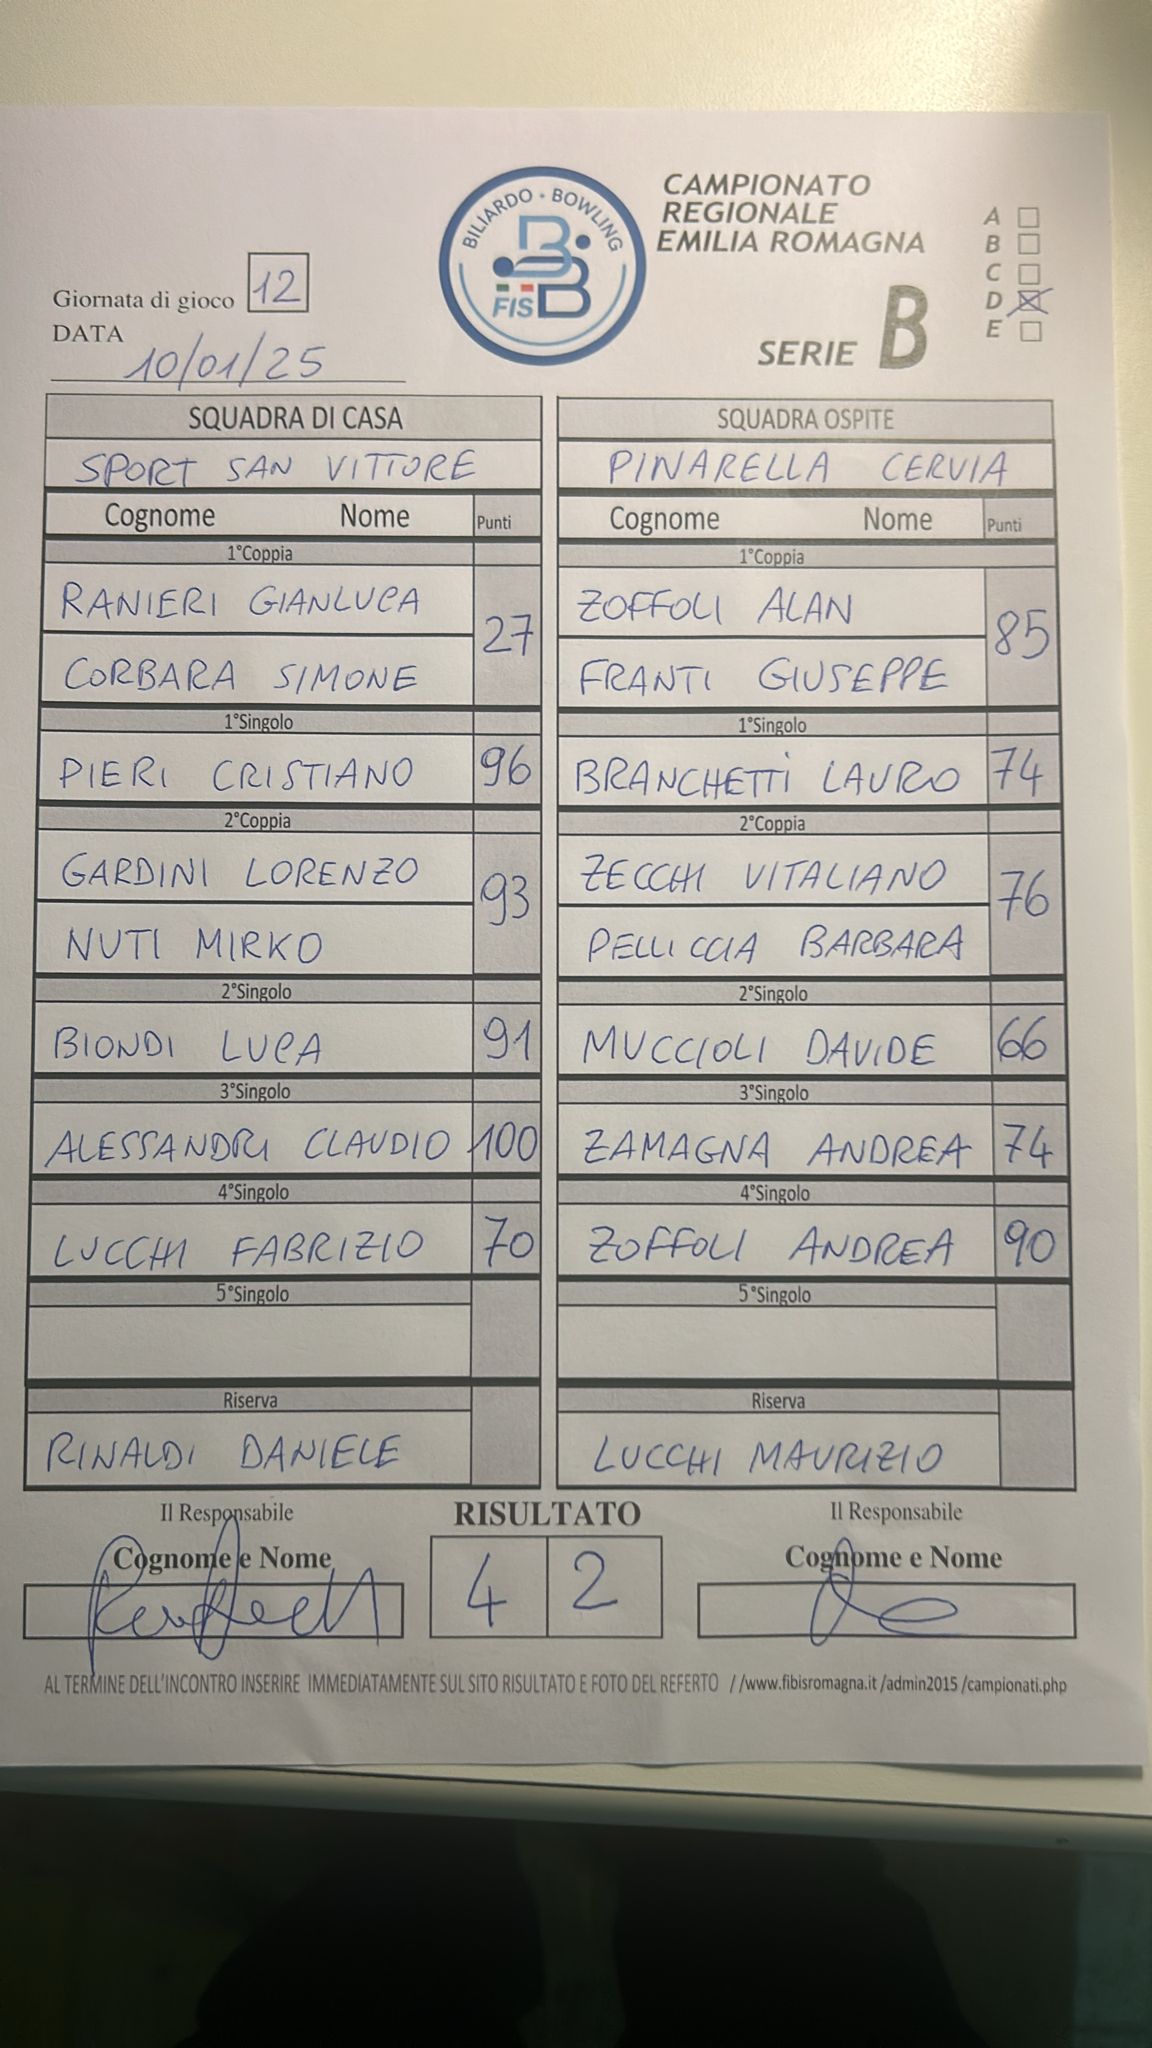 BILIARDO - BOWLING
FISBB
CAMPIONATO
REGIONALE
EMILIA ROMAGNA
SERIE B
A
B
C
D
E
Giornata di gioco 12
DATA
10/01/25
SQUADRA DI CASA
SPORT SAN VITTORE
Cognome Nome Punti
1°Coppia
RANIERI GIANLUCA
27
CORBARA SIMONE
1°Singolo
PIERI CRISTIANO 96
2°Coppia
GARDINI LORENZO
93
NUTI MIRKO
2°Singolo
BIONDI LUCA 91
3°Singolo
ALESSANDRI CLAUDIO 100
4°Singolo
LUCCHI FABRIZIO 70
5°Singolo
Riserva
RINALDI DANIELE
SQUADRA OSPITE
PINARELLA CERVIA
Cognome Nome Punti
1°Coppia
ZOFFOLI ALAN
85
FRANTI GIUSEPPE
1°Singolo
BRANCHETTI LAURO 74
2°Coppia
ZECCHI VITALIANO
76
PELLICCIA BARBARA
2°Singolo
MUCCIOLI DAVIDE 66
3°Singolo
ZAMAGNA ANDREA 74
4°Singolo
ZOFFOLI ANDREA 90
5°Singolo
Riserva
LUCCHI MAURIZIO
Il Responsabile
Cognome e Nome
RISULTATO
4 2
Il Responsabile
Cognome e Nome
AL TERMINE DELL'INCONTRO INSERIRE IMMEDIATAMENTE SUL SITO RISULTATO E FOTO DEL REFERTO //www.fibisromagna.it /admin2015 /campionati.php